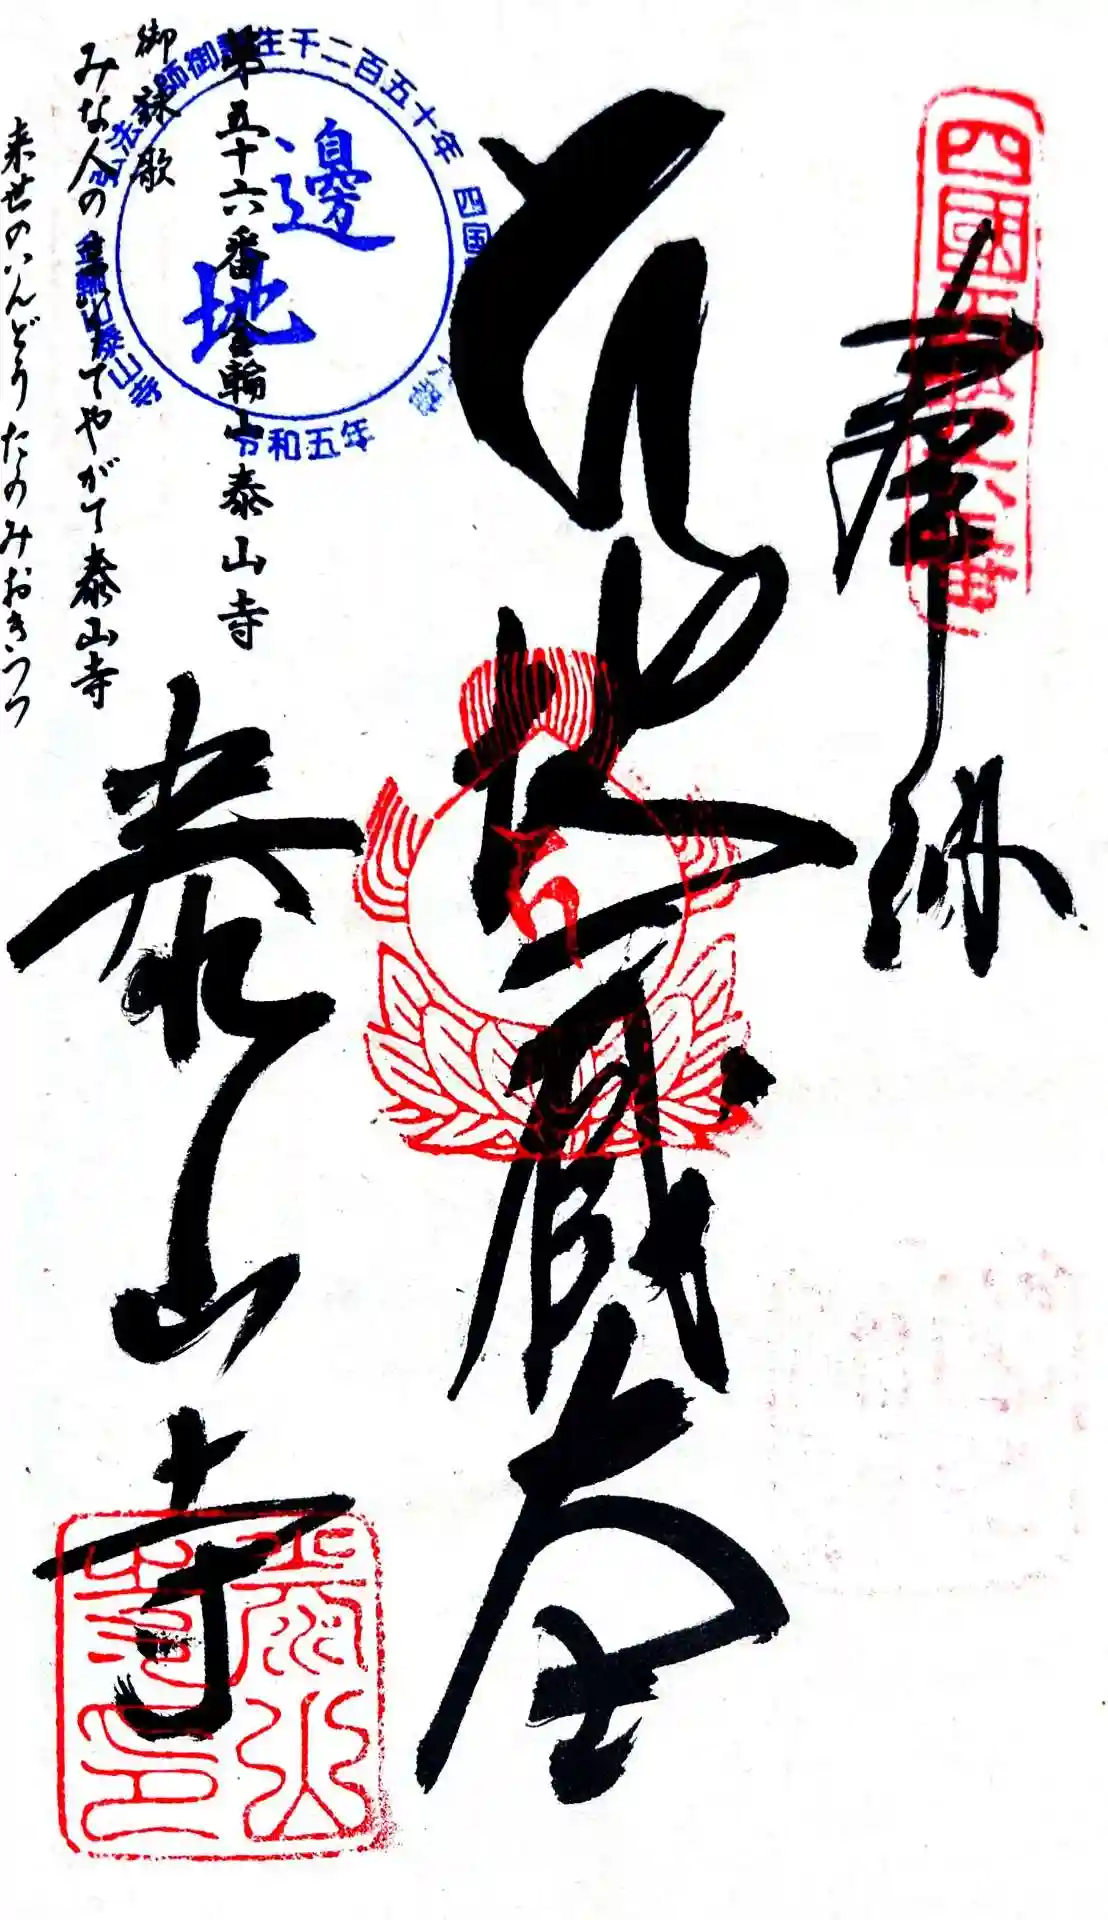 奉納
四國五十六番
地蔵大士
泰山寺
泰山寺印
第五十六番 金輪山 泰山寺
御詠歌
みな人の
てやがて泰山寺
来世のいんどうたのみおきつつ
師御誕生千二百五十年
四国
邊地
令和五年
金輪山泰山寺